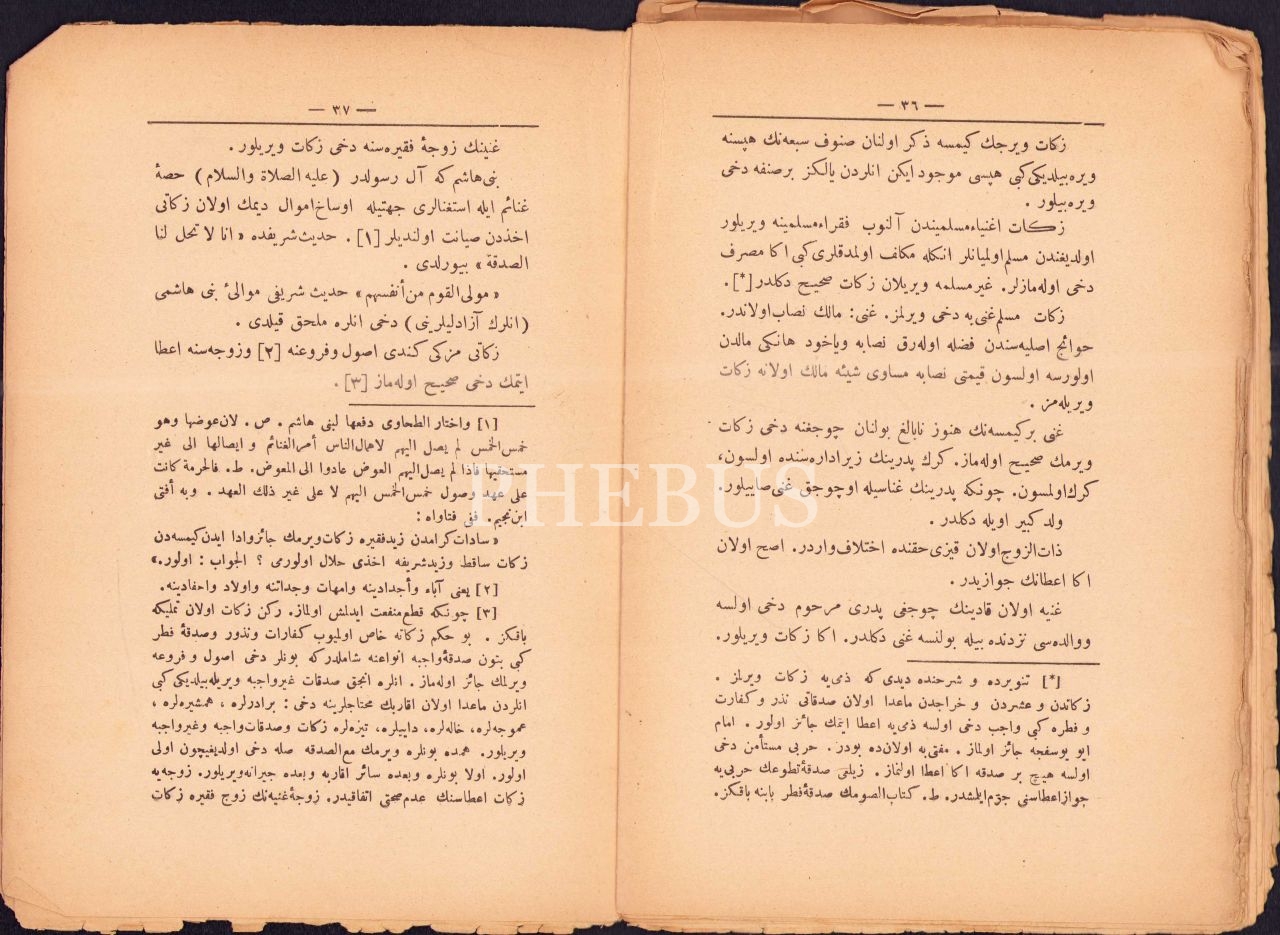 — ٣٦ —
زكات ويرجك كيمسه ذكر اولنان صنوف سبعه‌نك هپسنه
ويره‌بيلديكی كبی هپسی موجود ايكن انلردن يالكز برصنفه دخی
ويره‌بيلور .
زكات اغنياء‌مسلميندن آلنوب فقراء‌مسلمينه ويريلور
اولديغندن مسلم‌اولميانلر انكله مكلف اولمدقلری كبی اكا مصرف
دخی اوله‌مازلر. غيرمسلمه ويريلان زكات صحيح دكلدر [*].
زكات مسلم‌غنی‌يه دخی ويرلمز. غنی: مالك نصاب‌اولاندر.
حوائج اصليه‌سندن فضله اوله‌رق نصابه وياخود هانكی مالدن
اولورسه اولسون قيمتی نصابه مساوی شيئه مالك اولانه زكات
ويريله‌مز .
غنی بركيمسه‌نك هنوز نابالغ بولنان چوجغنه دخی زكات
ويرمك صحيح اوله‌ماز. كرك پدرينك زير اداره‌سنده اولسون،
كرك‌اولمسون. چونكه پدرينك غناسيله اوچوجق غنی‌صاييلور.
ولد كبير اويله دكلدر .
ذات‌الزوج‌اولان قيزی‌حقنده اختلاف‌واردر. اصح اولان
اكا اعطانك جوازيدر.
غنيه اولان قادينك چوجغی پدری مرحوم دخی اولسه
ووالده‌سی نزدنده بيله بولنسه غنی دكلدر. اكا زكات ويريلور.
[*] تنويرده و شرحنده ديدی كه ذمی‌يه زكات ويرلمز .
زكاتدن و عشردن و خراجدن ماعدا اولان صدقاتی نذر و كفارت
و فطره كبی واجب دخی اولسه ذمی‌يه اعطا ايتمك جائز اولور . امام
ابو يوسفجه جائز اولماز . مفتی‌به اولان‌ده بودر . حربی مستأمن دخی
اولسه هيچ بر صدقه اكا اعطا اولنماز . زيلعی صدقهٔ‌تطوعك حربی‌يه
جواز اعطاسنی جزم‌ايلمشدر. ط. كتاب‌الصومك صدقهٔ‌فطر بابنه باقكز.
— ٣٧ —
غنينك زوجهٔ فقيره‌سنه دخی زكات ويريلور .
بنی‌هاشم كه آل رسولدر (عليه‌الصلاة والسلام) حصهٔ
غنائم ايله استغنالری جهتيله اوساخ‌اموال ديمك اولان زكاتی
اخذدن صيانت اولنديلر [١] . حديث‌شريفده « انا لا تحل لنا
الصدقة » بيورلدی .
« مولی القوم من‌أنفسهم » حديث شريفی موالیٔ بنی هاشمی
(انلرك آزادليلرينی) دخی انلره ملحق قيلدی .
زكاتی مزكی كندی اصول وفروعنه [٢] وزوجه‌سنه اعطا
ايتمك دخی صحيح اوله‌ماز [٣] .
[١] واختار الطحاوی دفعها لبنی هاشم . ص . لان‌عوضها وهو
خمس‌الخمس لم يصل اليهم لاهمال‌الناس أمرالغنائم و ايصالها الی غير
مستحقيها فاذا لم يصل‌اليهم العوض عادوا الی المعوض. ط. فالحرمة كانت
علی عهد وصول خمس‌الخمس اليهم لا علی غير ذلك العهد . وبه أفتی
ابن‌نجيم. ففی فتاواه :
« سادات‌كرامدن زيدفقيره زكات‌ويرمك جائزوادا ايدن‌كيمسه‌دن
زكات ساقط وزيدشريفه اخذی حلال اولورمی ؟ الجواب : اولور.»
[٢] يعنی آباء وأجدادينه وامهات وجداتنه واولاد واحفادينه.
[٣] چونكه قطع‌منفعت ايدلمش اولماز. ركن زكات اولان تمليكه
باقكز . بو حكم زكاته خاص اولميوب كفارات ونذور وصدقهٔ فطر
كبی بتون صدقهٔ‌واجبه انواعنه شاملدركه بونلر دخی اصول و فروعه
ويرلمك جائز اوله‌ماز. انلره انجق صدقات غيرواجبه ويريله‌بيلديكی كبی
انلردن ماعدا اولان اقاربك محتاجلرينه دخی : برادرلره ، همشيره‌لره ،
عموجه‌لره، خاله‌لره، داييلره، تيزه‌لره زكات وصدقات‌واجبه وغيرواجبه
ويريلور. همده بونلره ويرمك مع‌الصدقه صله دخی اولديغيچون اولی
اولور. اولا بونلره وبعده سائر اقاربه وبعده جيرانه‌ويريلور. زوجه‌يه
زكات اعطاسنك عدم‌صحتی اتفاقيدر. زوجهٔ‌غنيه‌نك زوج فقيره زكات
PHEBUS